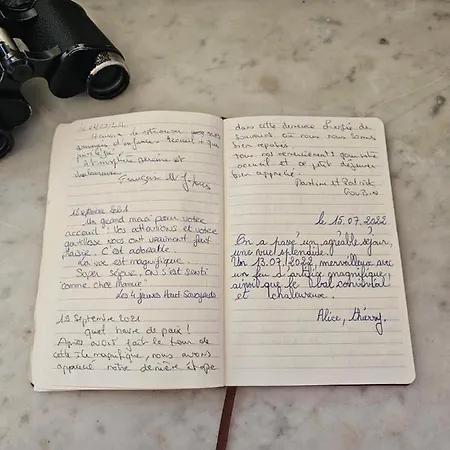 souvenirs d'enfance
Françoise
12 septembre 2021
Un grand merci pour votre
accueil ! Vos attentions et votre
gentillesse nous ont vraiment fait
plaisir. C'est adorable.
La vue est magnifique.
Super séjour, on s'est senti
"comme chez mamie"
Les 4 jeunes Haut Savoyards
19 Septembre 2021
Quel havre de paix !
Après avoir fait le tour de
cette île magnifique, nous avons
apprécié notre dernière étape
dans cette demeure
souvenirs où nous nous sommes
bien reposés
tous nos remerciements pour votre
accueil et ce petit déjeuner
bien apprécié.
Martine et Patrick
le 15.07.2022
On a passé un agréable séjour,
une vue splendide.
Un 13.07.2022 merveilleux avec
un feu d'artifice magnifique
ainsi que le bal convivial
et chaleureux.
Alice, Thierry